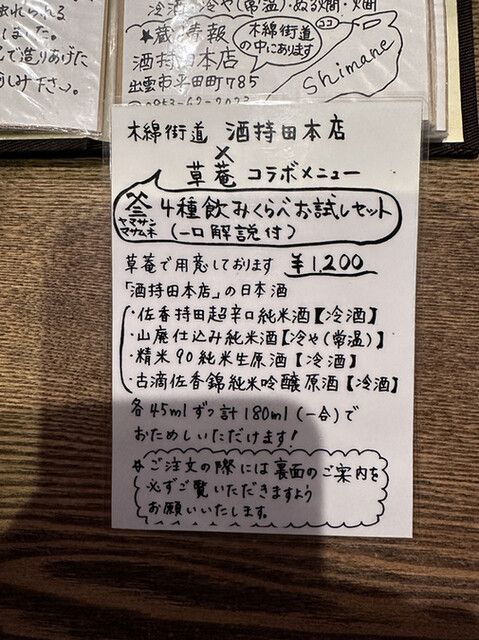 しました。
んで造りあげた
しみ下さい。
冷酒・冷や(常温)・ぬる燗・燗
★蔵情報
木綿街道
ココ
酒持田本店
の中にあります
出雲市平田町785
Shimane
木綿街道 酒持田本店
×
草庵 コラボメニュー
ヤマサン
マサムネ
4種飲みくらべお試しセット
(一口解説付)
草庵で用意しております ¥1,200
「酒持田本店」の日本酒
・佐香持田超辛口純米酒【冷酒】
・山廃仕込み純米酒【冷や(常温)】
・精米90純米生原酒【冷酒】
・古滴佐香錦純米吟醸原酒【冷酒】
各45mlずつ計180ml(一合)で
おためしいただけます!
※ご注文の際には裏面のご案内を
必ずご覧いただきますよう
お願いいたします。